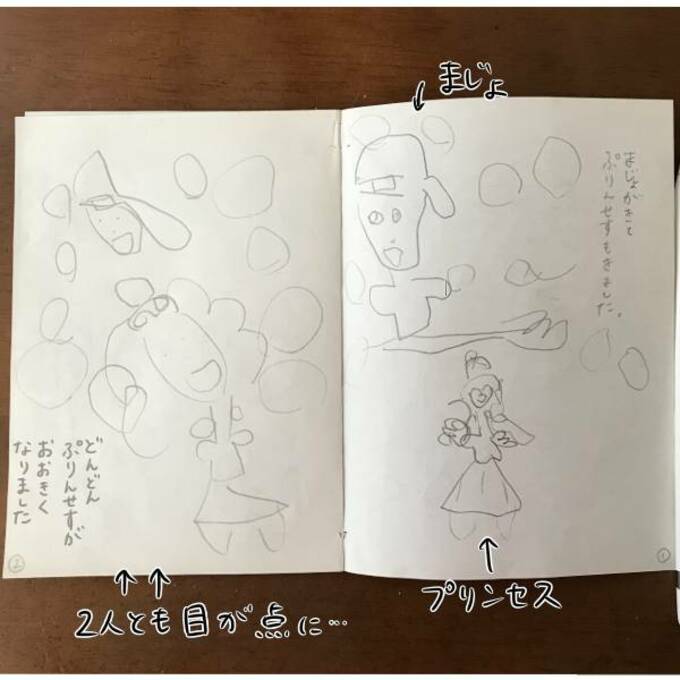 まじょ
まじょがきて
ぷりんせすもきました。
プリンセス
①
どんどん
ぷりんせすが
おおきく
なりました
②
2人とも目が点に…